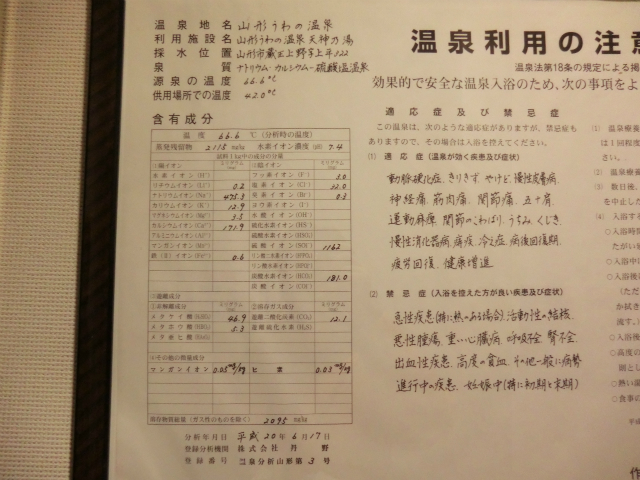 温泉地名 山形うわの温泉
利用施設名 山形うわの温泉 天神乃湯
採水位置 山形市蔵王上野字上平122
泉質 ナトリウム・カルシウム-硫酸塩温泉
源泉の温度 66.6℃
供用場所での温度 42.0℃
含有成分
温度 66.6 ℃ (分析時の温度)
蒸発残留物 2118 mg/kg 水素イオン濃度 (pH) 7.4
試料1kg中の成分の分量
(1)陽イオン ミリグラム (2)陰イオン ミリグラム
水素イオン(H⁺) フッ素イオン(F⁻) 3.0
リチウムイオン(Li⁺) 0.2 塩素イオン(Cl⁻)
ナトリウムイオン(Na⁺) 475.3 臭素イオン(Br⁻) 0.3
カリウムイオン(K⁺) 12.9 ヨウ素イオン(I⁻)
マグネシウムイオン 3.5 水酸イオン(OH⁻)
カルシウムイオン 171.9 硫化水素イオン(HS⁻)
アルミニウムイオン
マンガンイオン 硫酸イオン 1162
鉄(Ⅱ)イオン(Fe²⁺) 0.6
181.0
炭酸イオン
(3)遊離成分
メタケイ酸 46.9 遊離二酸化炭素(CO₂) 12.1
メタホウ酸 5.3 遊離硫化水素(H₂S)
メタ亜ヒ酸
(4)その他の微量成分
マンガンイオン 0.05mg/kg ヒ素 0.03mg/kg
溶存物質総量(ガス性のものを除く) 2095 mg/kg
分析年月日 平成20年6月17日
登録分析機関 株式会社 丹野
登録番号 温泉分析山形第3号
温泉利用の注意
温泉法第18条の規定による掲
効果的で安全な温泉入浴のため、次の事項をよ
適応症及び禁忌症
この温泉は、次のような適応症がありますが、禁忌症も
ありますので、その場合は入浴を控えてください。
(1) 適応症(温泉が効く疾患及び症状)
動脈硬化症. きりきず. やけど. 慢性皮膚病.
神経痛. 筋肉痛. 関節痛. 五十肩.
運動麻痺. 関節のこわばり. うちみ. くじき.
慢性消化器病. 痔疾. 冷え症. 病後回復期.
疲労回復. 健康増進
(2) 禁忌症(入浴を控えた方が良い疾患及び症状)
急性疾患(特に熱のある場合)活動性の結核.
悪性腫瘍. 重い心臓病. 呼吸不全. 腎不全.
出血性疾患. 高度の貧血. その他一般に病勢
進行中の疾患. 妊娠中(特に初期と末期)
(1) 温泉療養
は1回程度
ください。
(2) 温泉療養
(3) 数日後、
を中止し
(4) 入浴する
○入浴時
たがい
○入浴中
○入浴後に
(ただ
か拭き
流す。)
○入浴後
○高度の
弱とし
○熱い
○食事の
平成
作